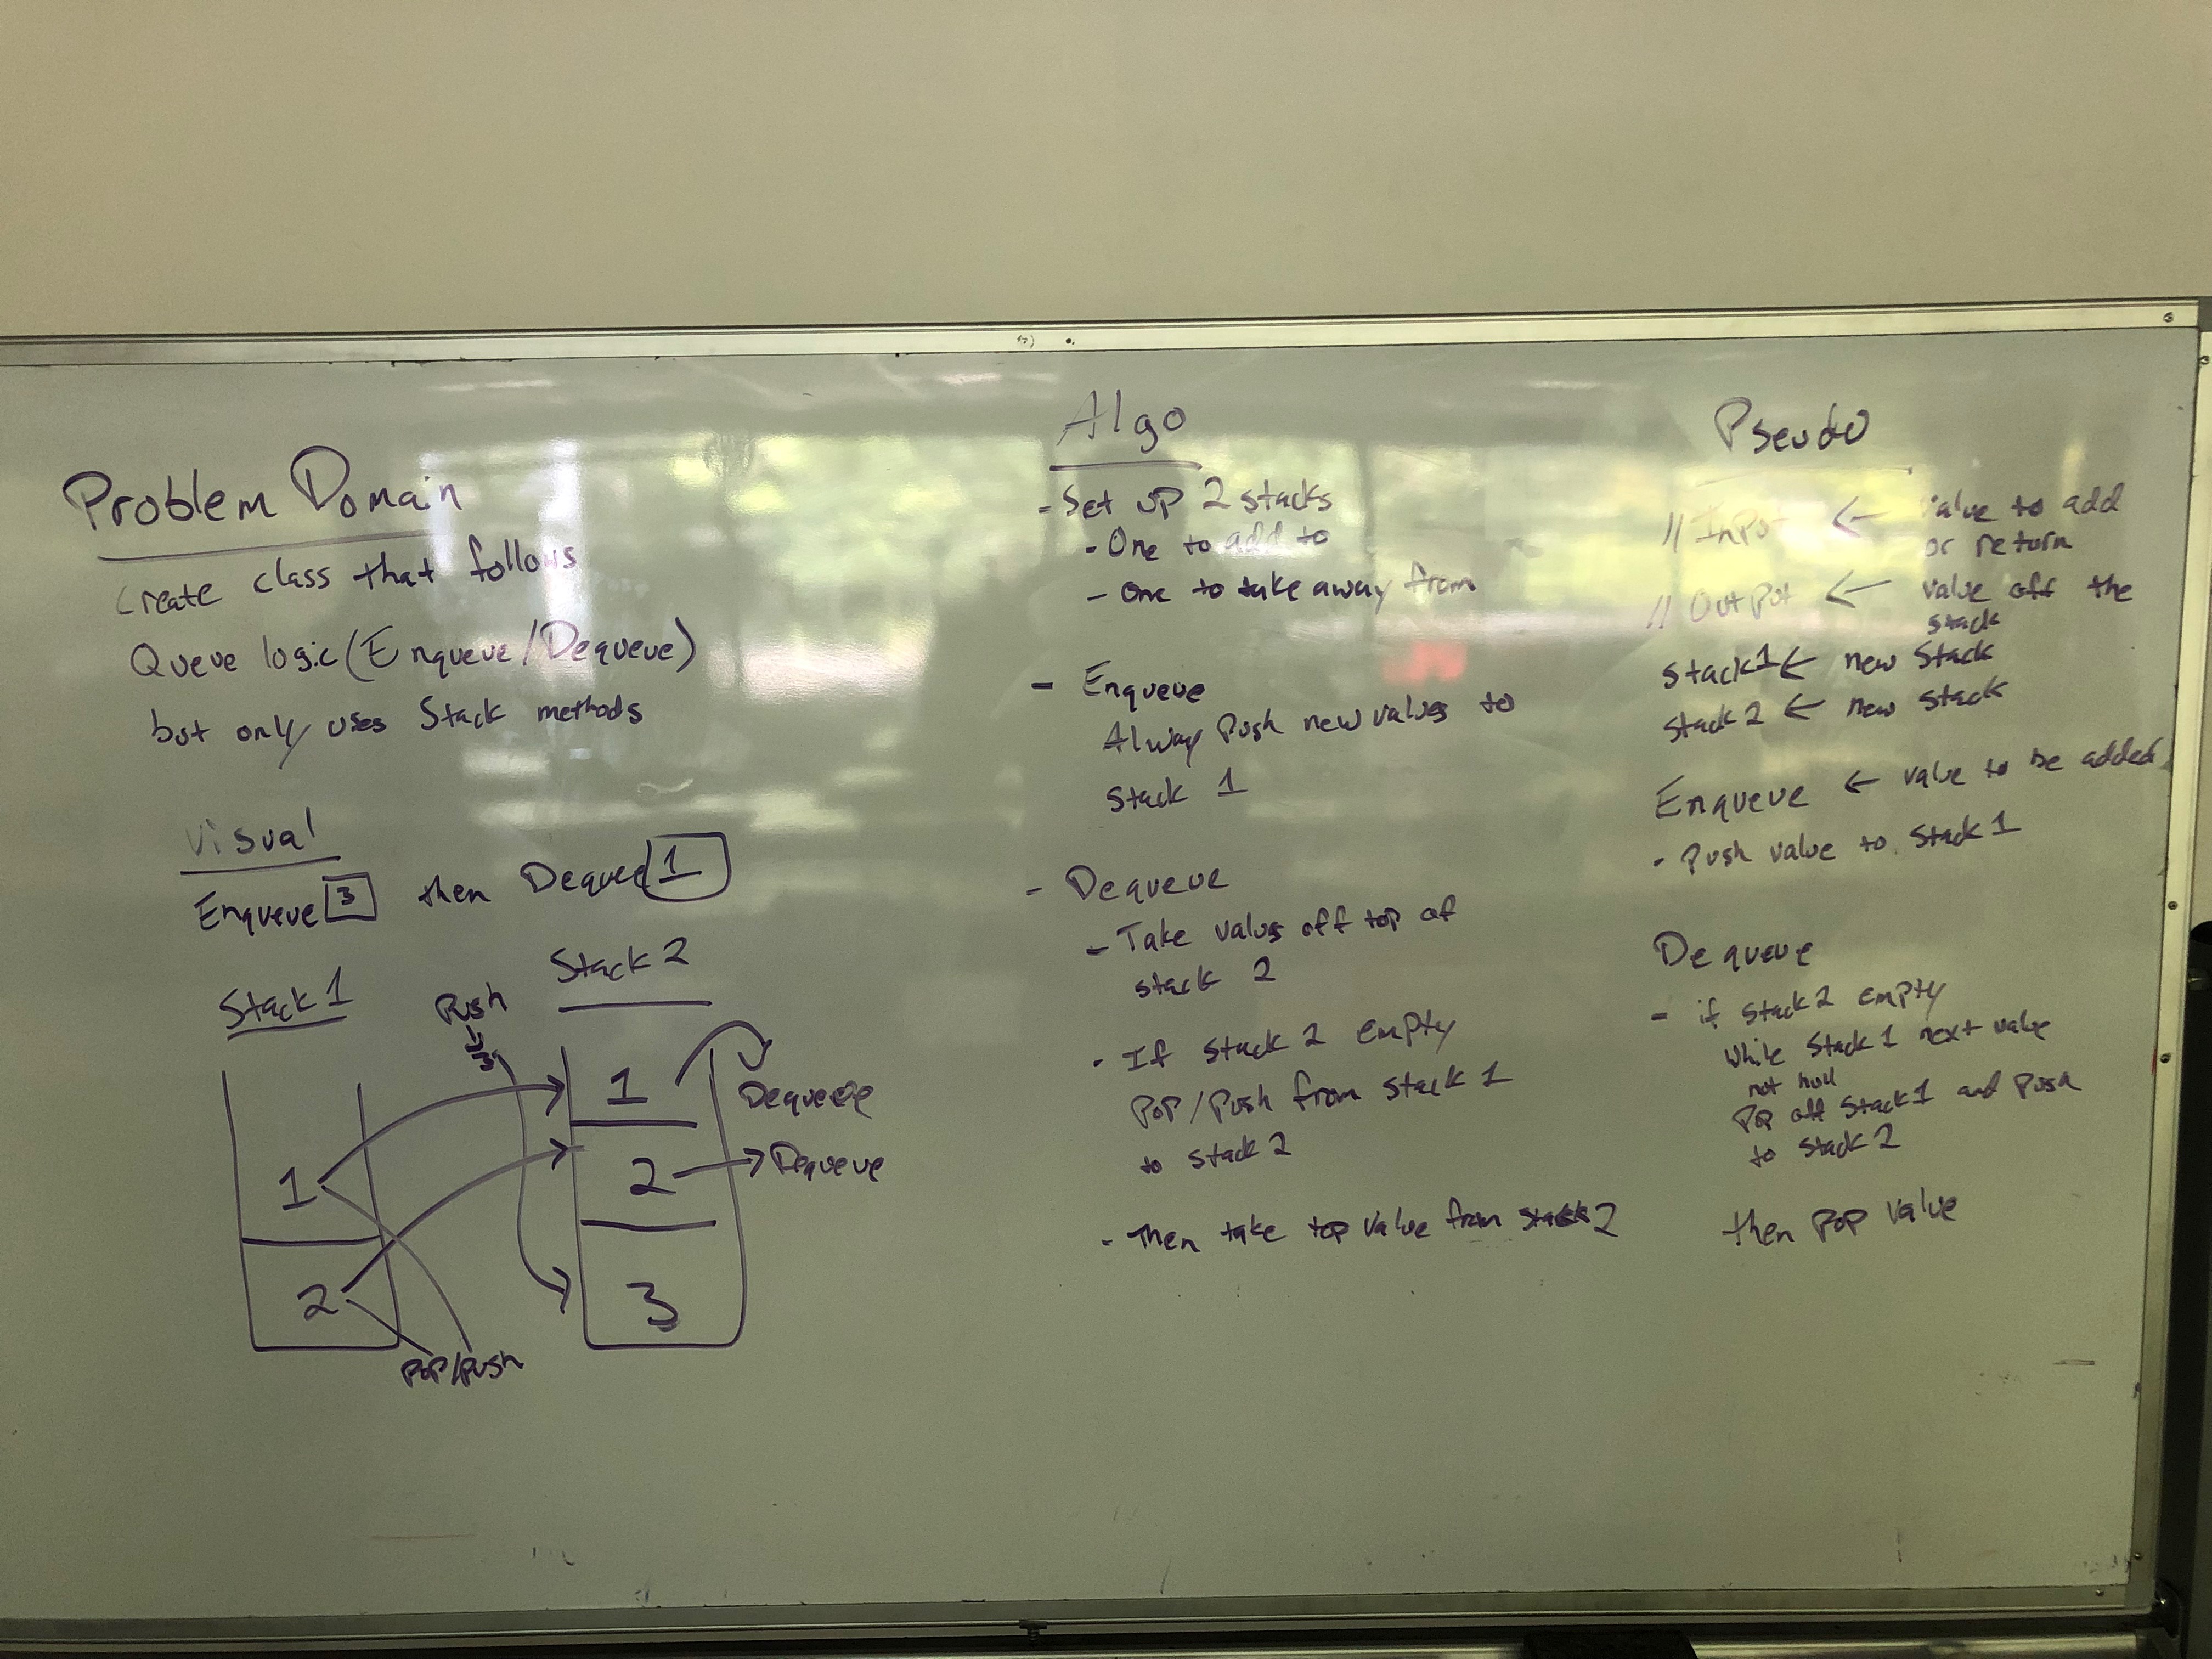 Problem Domain
Create class that follows
Queue logic (Enqueue/Dequeue)
but only uses Stack methods
Visual
Enqueue 3 then Dequee 1
Stack 1
Push
3
Stack 2
1
2
1
2
3
Dequeue
Dequeue
POP/Push
Algo
- Set up 2 stacks
- One to add to
- One to take away from
- Enqueue
Alway Push new values to
Stack 1
- Dequeue
- Take values off top of
stack 2
- If stack 2 empty
POP/Push from stack 1
to stack 2
- Then take top value from stack 2
Pseudo
// InPut ← value to add
or return
// OutPut ← value off the
stack
Stack1 ← new Stack
Stack 2 ← new Stack
Enqueue ← value to be added
- Push value to Stack 1
Dequeue
- if Stack 2 empty
While Stack 1 next value
not null
Pop off Stack 1 and Push
to Stack 2
then POP value